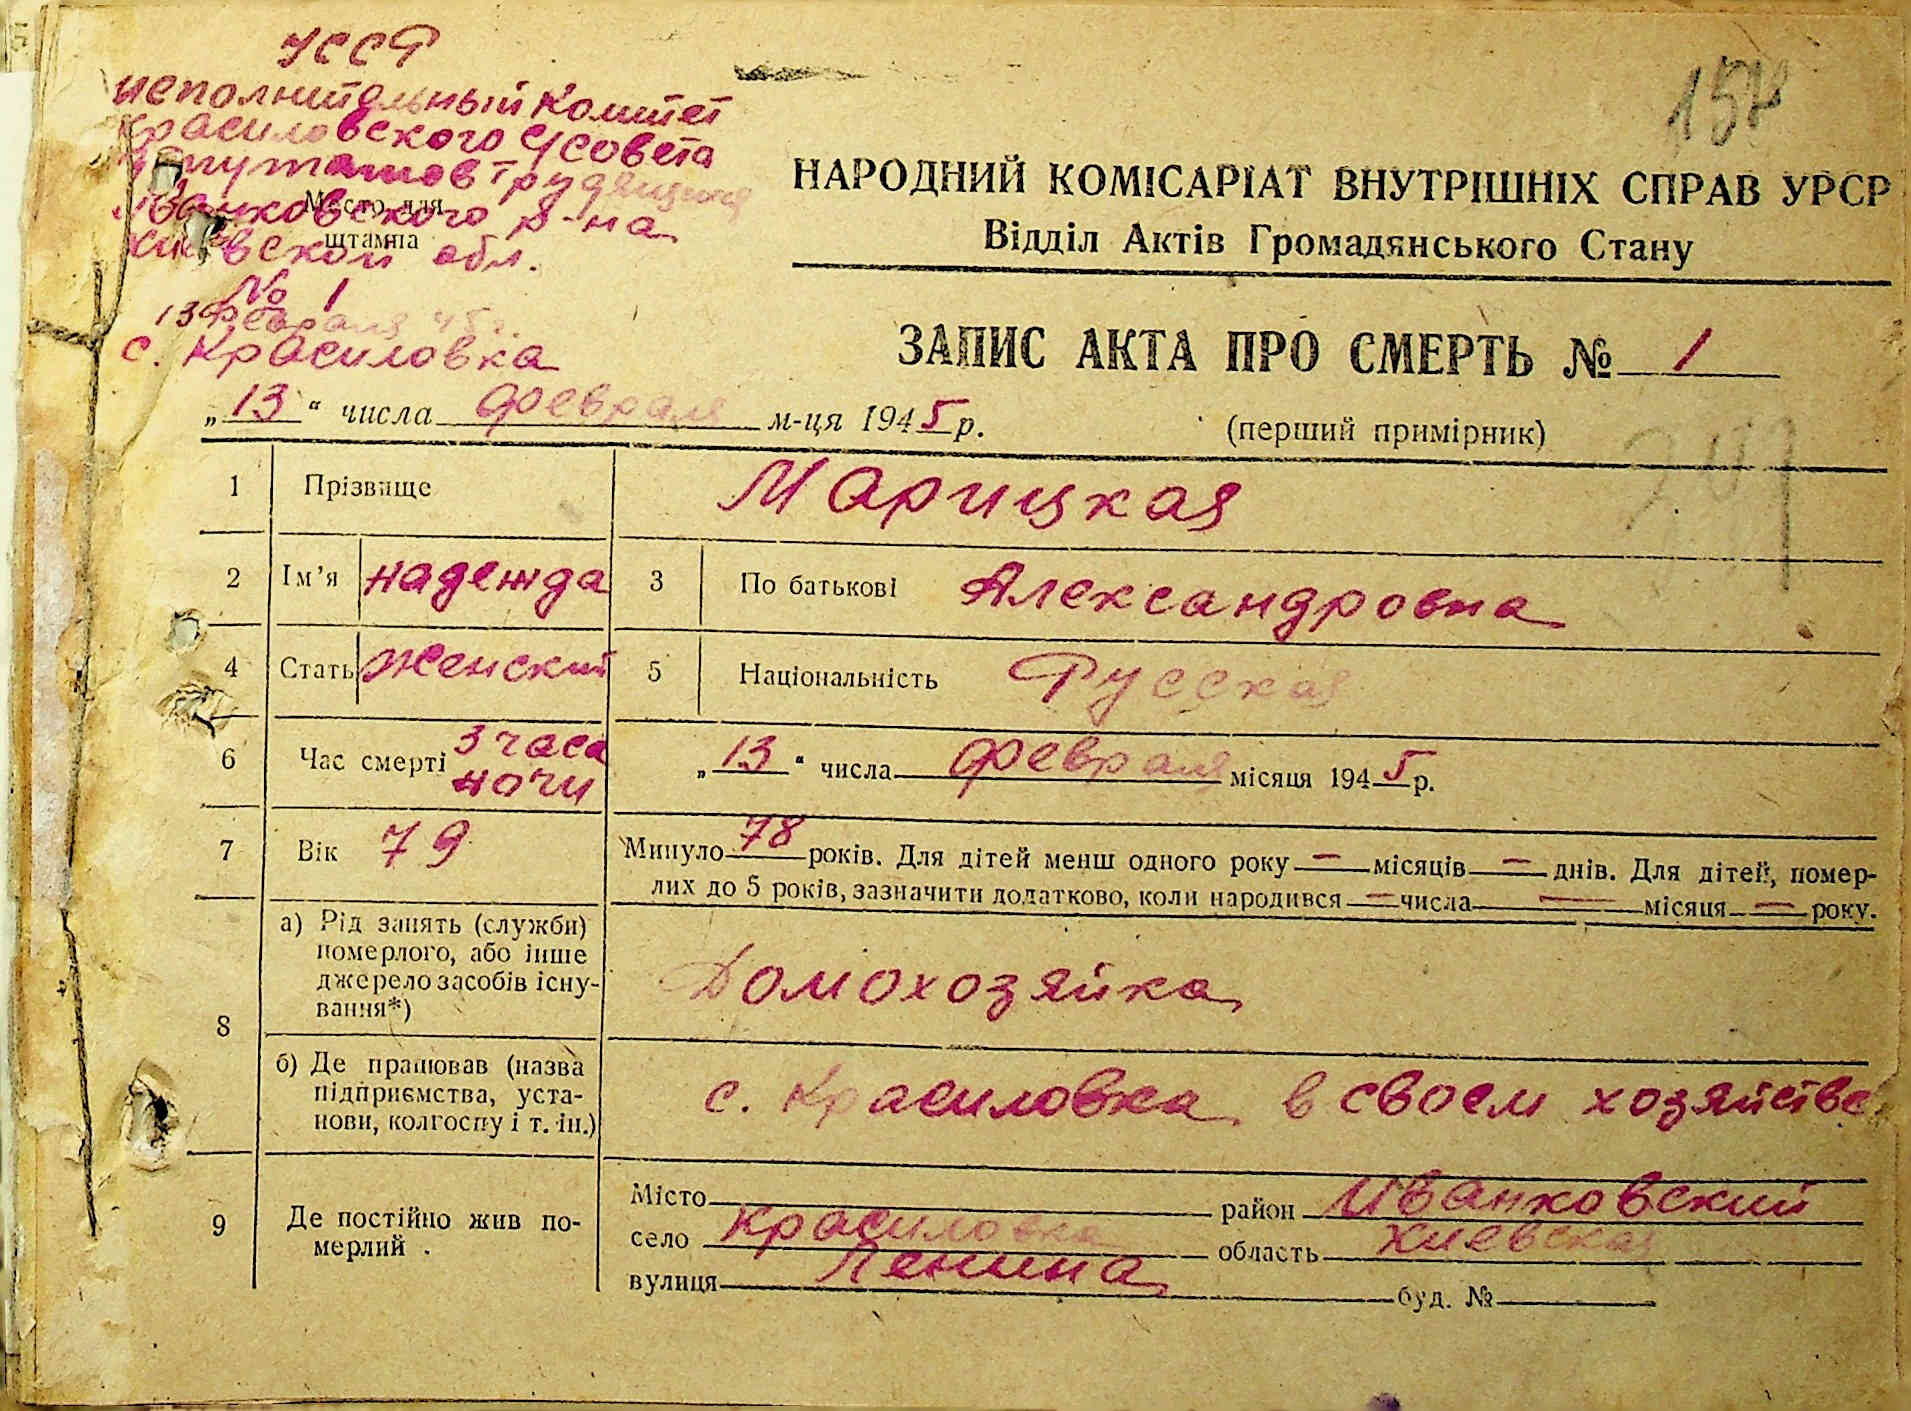 УССР
исполнительный комитет
Красиловского с/совета
депутатов трудящихся
Місто для
Иванковского р-на
штампа
Киевской обл.
№ 1
13 февраля 45 г.
с. Красиловка
НАРОДНИЙ КОМІСАРІАТ ВНУТРІШНІХ СПРАВ УРСР
Відділ Актів Громадянського Стану
ЗАПИС АКТА ПРО СМЕРТЬ № 1
„13“ числа февраля м-ця 1945 р.
(перший примірник)
1 Прізвище Марицкая
2 Ім’я надежда 3 По батькові Александровна
4 Стать Женский 5 Національність Русская
6 Час смерті 3 часа ночи „13“ числа февраля місяця 1945 р.
7 Вік 79 Минуло 78 років. Для дітей менш одного року — місяців — днів. Для дітей, помер-
лих до 5 років, зазначити додатково, коли народився — числа — місяця — року.
8 а) Рід занять (служби)
померлого, або інше
джерело засобів існу-
вання*)
Домохозяйка
б) Де працював (назва
підприємства, уста-
нови, колгоспу і т. ін.)
с. Красиловка в своем хозяйстве
9 Де постійно жив по-
мерлий
Місто район Иванковский
село Красиловка область Киевская
вулиця Ленина буд. №